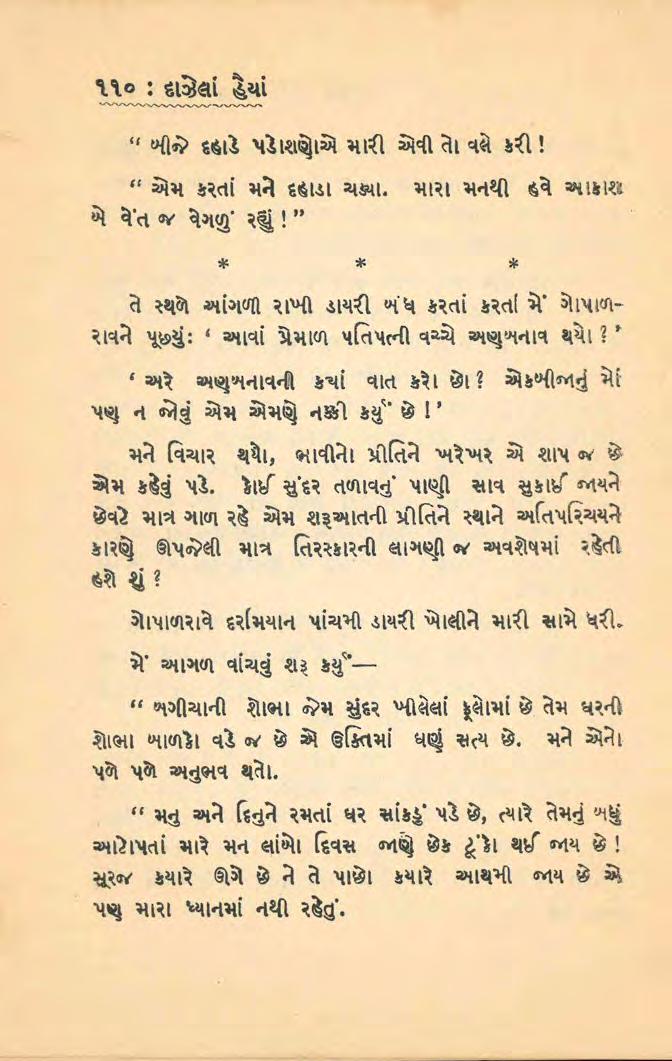 ૧૧૦ : દાઝેલાં હૈયાં
“ બીજે દહાડે પડોશણોએ મારી એવી તો વલે કરી !
“ એમ કરતાં મને દહાડા ચઢ્યા. મારા મનથી હવે આકાશ
બે વેંત જ વેગળું રહ્યું ! ”
* * *
તે સ્થળે આંગળી રાખી ડાયરી બંધ કરતાં કરતાં મેં ગોપાળ-
રાવને પૂછ્યુંઃ ‘ આવાં પ્રેમાળ પતિપત્ની વચ્ચે અણબનાવ થયો ? ’
‘ અરે અણબનાવની કયાં વાત કરો છો ? એકબીજાનું મોં
પણ ન જોવું એમ એમણે નક્કી કર્યું છે ! ’
મને વિચાર થયો, ભાવીનો પ્રીતિને ખરેખર એ શાપ જ છે
એમ કહેવું પડે. કોઈ સુંદર તળાવનું પાણી સાવ સુકાઈ જાયને
છેવટે માત્ર ગાળ રહે એમ શરૂઆતની પ્રીતિને સ્થાને અતિપરિચયને
કારણે ઊપજેલી માત્ર તિરસ્કારની લાગણી જ અવશેષમાં રહેતી
હશે શું ?
ગોપાળરાવે દરમિયાન પાંચમી ડાયરી ખોલીને મારી સામે ધરી.
મેં આગળ વાંચવું શરૂ કર્યું—
“ બગીચાની શોભા જેમ સુંદર ખીલેલાં ફૂલોમાં છે તેમ ઘરની
શોભા બાળકો વડે જ છે એ ઉક્તિમાં ઘણું સત્ય છે. મને એનો
પળે પળે અનુભવ થતો.
“ મનુ અને દિનુને રમતાં ઘર સાંકડું પડે છે, ત્યારે તેમનું બધું
આટોપતાં મારે મન લાંબો દિવસ જાણે છેક ટૂંકો થઈ જાય છે !
સૂરજ કયારે ઊગે છે ને તે પાછો કયારે આથમી જાય છે એ
પણ મારા ધ્યાનમાં નથી રહેતું.